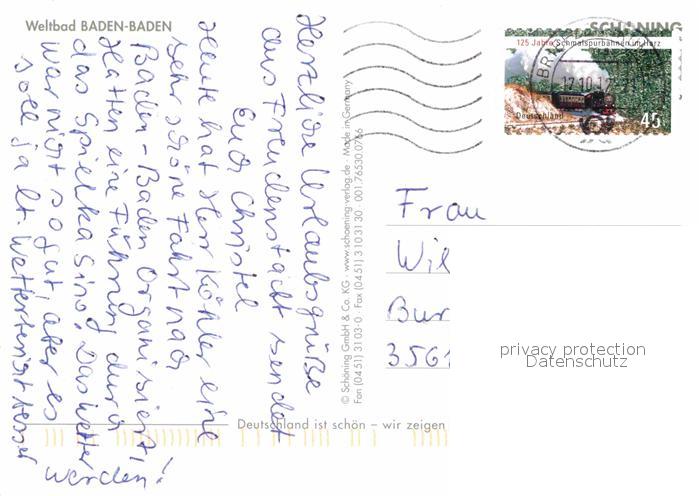 Weltbad BADEN-BADEN
Herzliche Urlaubsgrüße
aus Freudenstadt sendet
Euch Christel
Heute hat Herr Köhler eine
sehr schöne Fahrt nach
Baden-Baden Organisiert,
Hatten eine Führung durch
das Spielkasino. Das Wetter
war nicht so gut, aber es
soll ja lt. Wetterbericht besser
werden!
© Schöning GmbH & Co. KG · www.schoening-verlag.de · Made in Germany
Fon (04 51) 31 03-0 · Fax (04 51) 3 10 31 30 · 001 76530 0766
Deutschland ist schön – wir zeigen
SCHÖNING
125 Jahre Schmalspurbahnen im Harz
BR
17.10.12
Deutschland
45
Frau
Wil
Bur
3561
privacy protection
Datenschutz